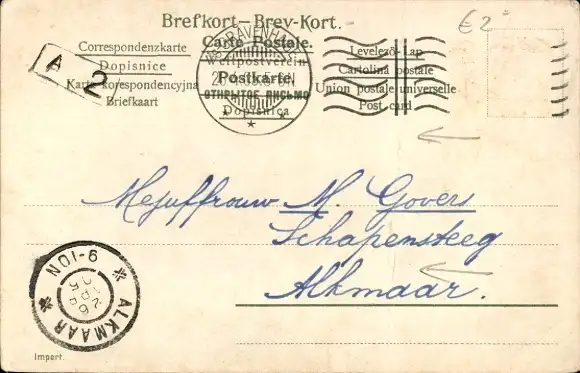 Brefkort-Brev-Kort.
€ 2
Carte Postale.
Correspondenzkarte
Weltpostverein
Levelező-Lap
Dopisnice
Postkarte.
Cartolina postale
Karta korespondencyjna
ОТКРЫТОЕ ПИСЬМО
Union postale universelle
Briefkaart
Dopisnica
Post card
'S GRAVENHAGE
A 2
Mejuffrouw M. Govers
Schapensteeg
Alkmaar.
ALKMAAR
9-10N
26 APR
Import.